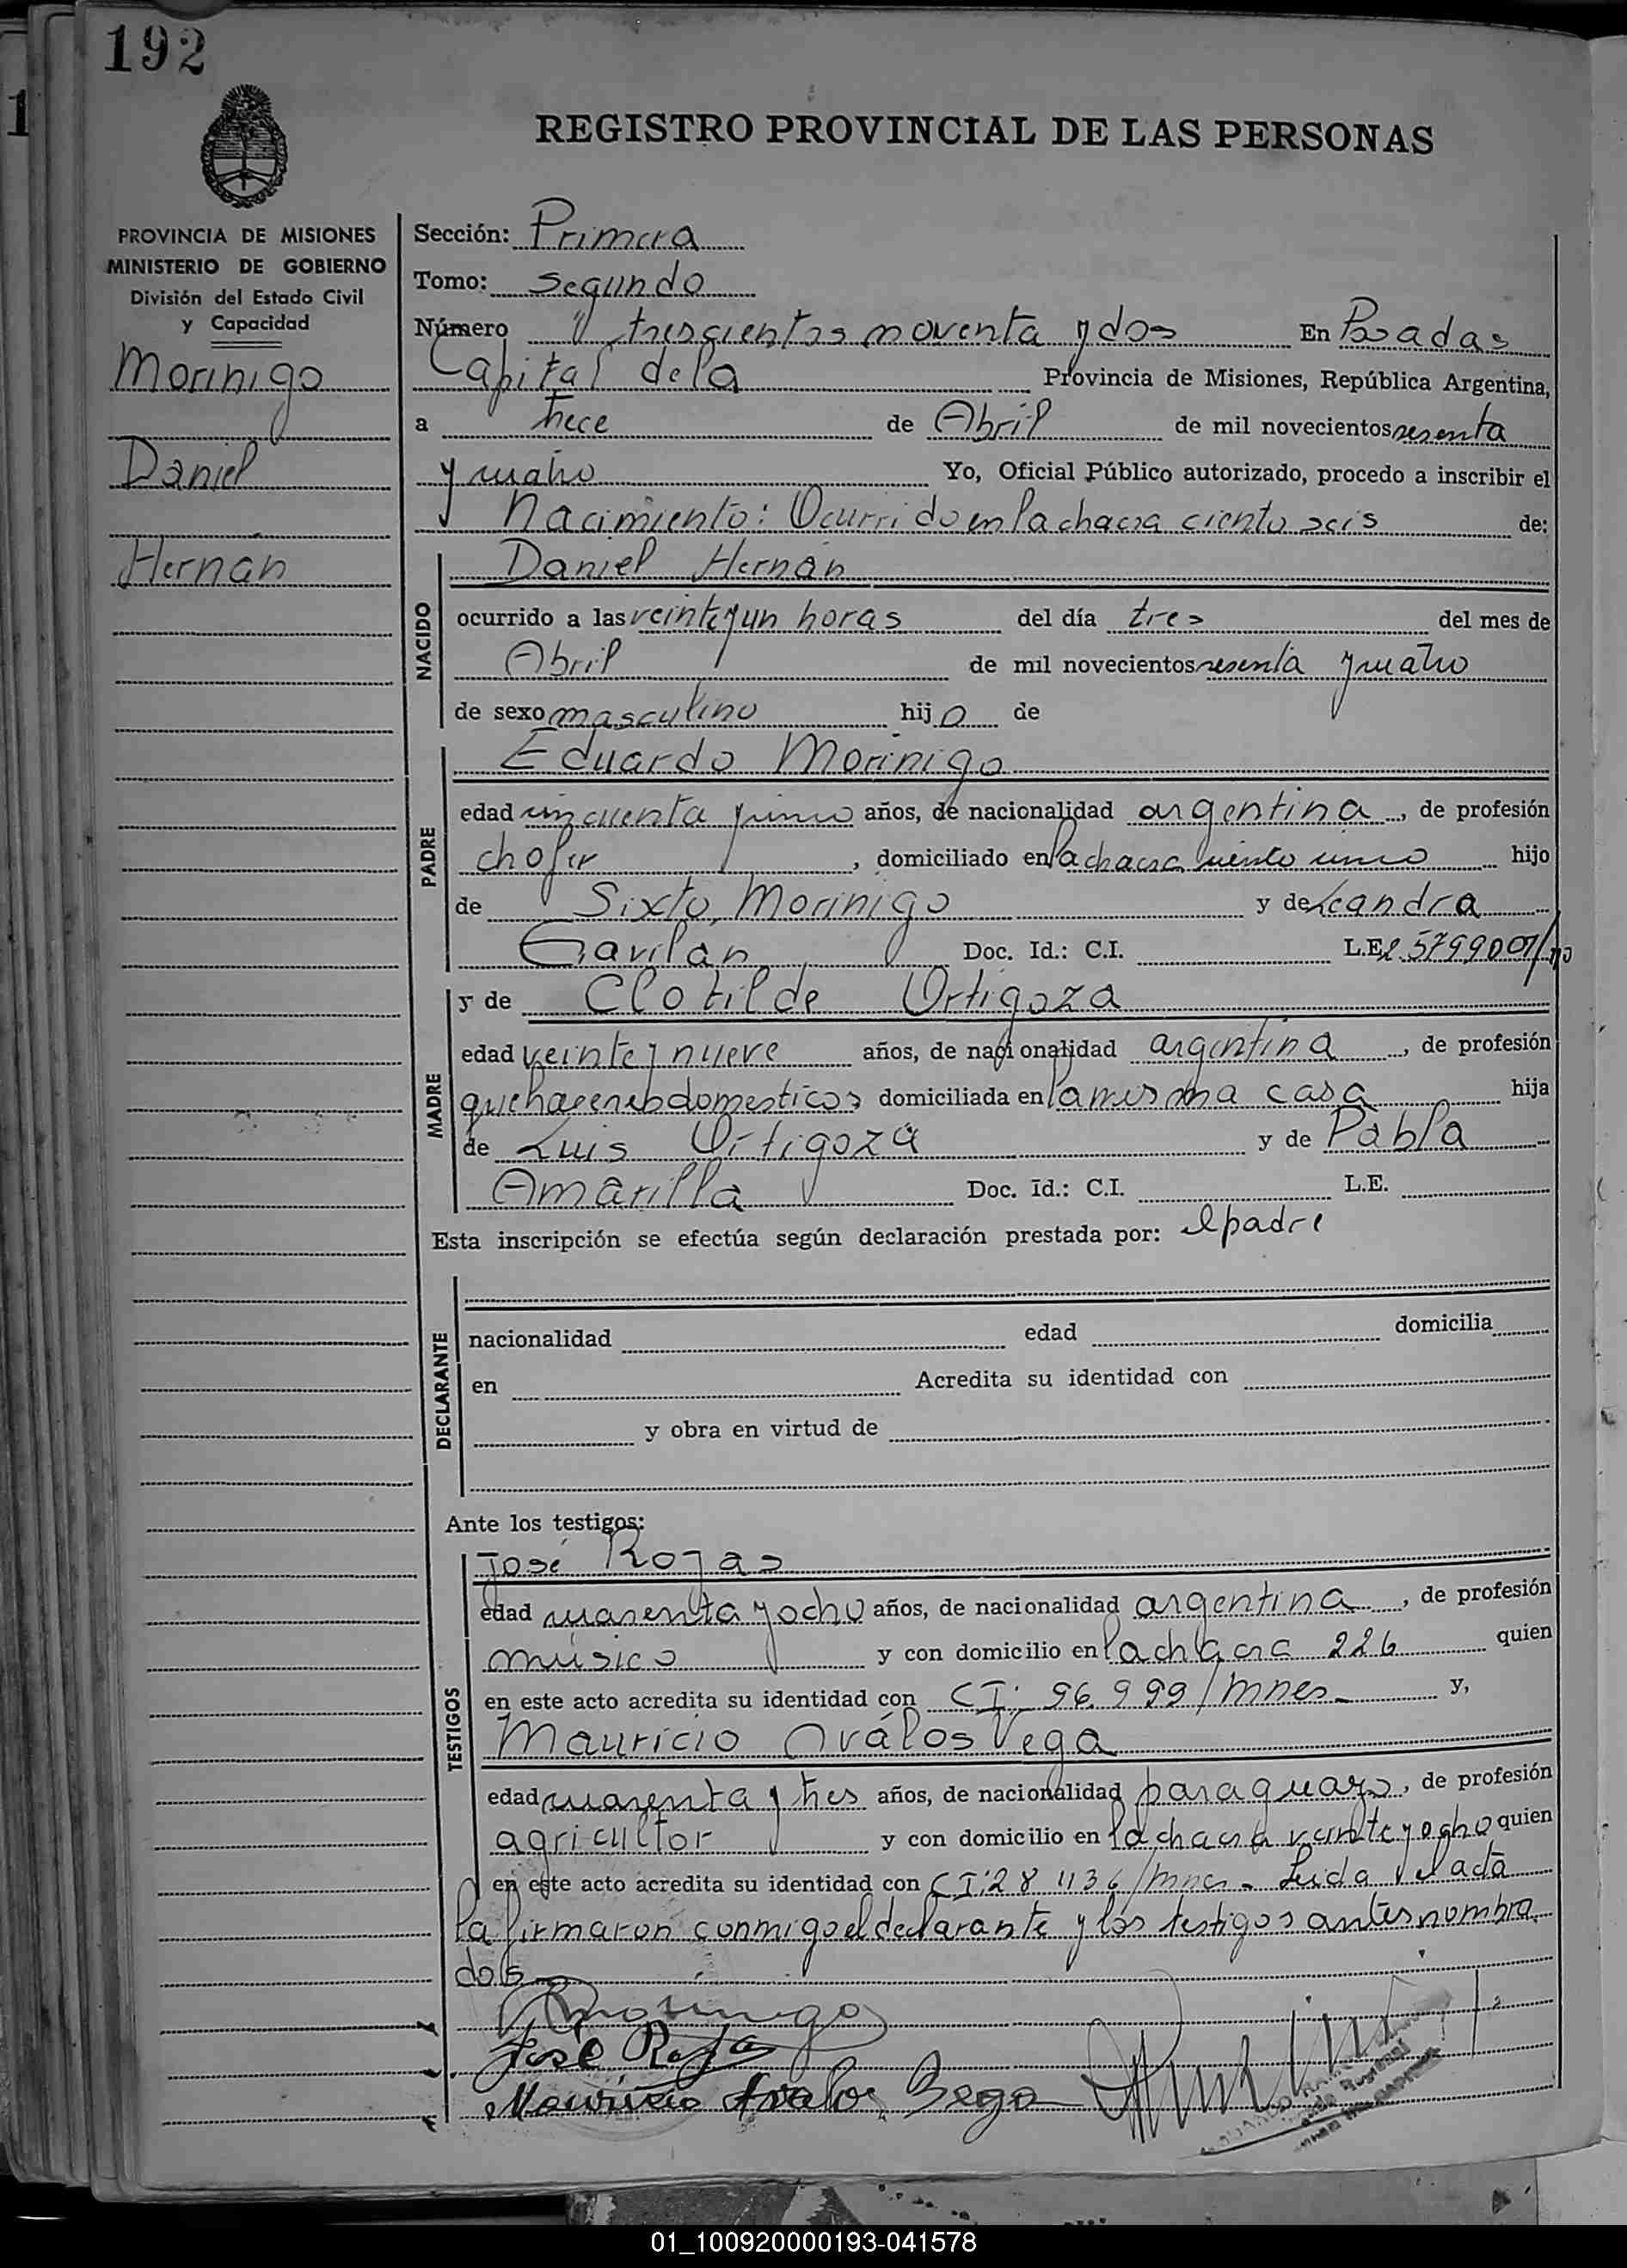 192
REGISTRO PROVINCIAL DE LAS PERSONAS
PROVINCIA DE MISIONES
MINISTERIO DE GOBIERNO
División del Estado Civil
y Capacidad
Morinigo
Daniel
Hernán
Sección: Primera
Tomo: segundo
Número trescientos noventa y dos En Posadas
Capital de la Provincia de Misiones, República Argentina,
a trece de Abril de mil novecientos sesenta
y cuatro Yo, Oficial Público autorizado, procedo a inscribir el
Nacimiento: Ocurrido en la chacra ciento seis de:
NACIDO
Daniel Hernán
ocurrido a las veinte y un horas del día tres del mes de
Abril de mil novecientos sesenta y cuatro
de sexo masculino hijo de
PADRE
Eduardo Morinigo
edad cincuenta y cinco años, de nacionalidad argentina, de profesión
chofer, domiciliado en la chacra ciento hijo
de Sixto Morinigo y de Leandra
Gavilán Doc. Id.: C.I. L.E.
MADRE
y de Clotilde Ortigoza
edad veinte y nueve años, de nacionalidad argentina, de profesión
domesticos domiciliada en la misma casa hija
de Luis Ortigoza y de Pabla
Amarilla Doc. Id.: C.I. L.E.
Esta inscripción se efectúa según declaración prestada por: el padre
DECLARANTE
nacionalidad edad domicilia
en Acredita su identidad con
y obra en virtud de
Ante los testigos:
TESTIGOS
José Rojas
edad cuarenta y ocho años, de nacionalidad argentina, de profesión
músico y con domicilio en la chacra 226 quien
en este acto acredita su identidad con CI. 96.999/mnes y,
Mauricio Oválos Vega
edad cuarenta y tres años, de nacionalidad paraguayo, de profesión
agricultor y con domicilio en la chacra veinte y ocho quien
en este acto acredita su identidad con CI: 28 1136/mnes. Leida el acta
la firmaron conmigo el declarante y los testigos antes nombra
dos
Morinigo
José Rojas
Mauricio Avalo Bega
01_100920000193-041578